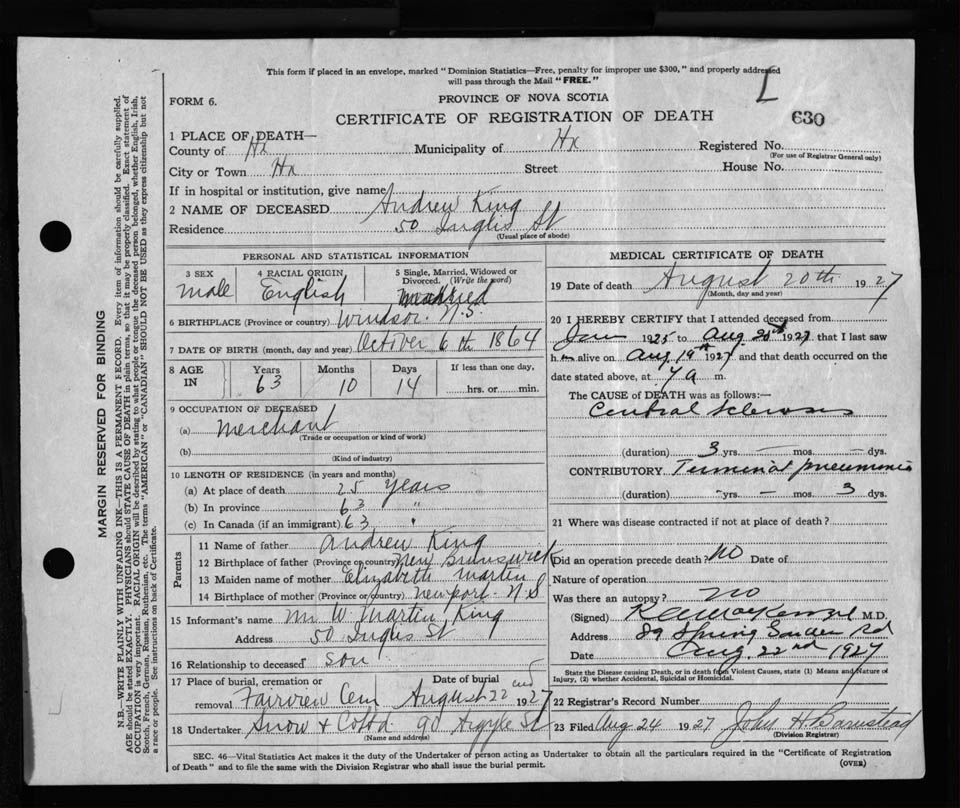 This form if placed in an envelope, marked "Dominion Statistics—Free, penalty for improper use $300," and properly addressed
will pass through the Mail "FREE."
L
FORM 6.
PROVINCE OF NOVA SCOTIA
CERTIFICATE OF REGISTRATION OF DEATH
630
1 PLACE OF DEATH—
County of Hx Municipality of Hx Registered No.
(For use of Registrar General only)
City or Town Hx Street House No.
If in hospital or institution, give name
2 NAME OF DECEASED Andrew King
Residence 50 Inglis St
(Usual place of abode)
PERSONAL AND STATISTICAL INFORMATION
3 SEX male
4 RACIAL ORIGIN English
5 Single, Married, Widowed or Divorced. (Write the word) Married
6 BIRTHPLACE (Province or country) Windsor. N.S.
7 DATE OF BIRTH (month, day and year) October 6th 1864
8 AGE IN Years 63 Months 10 Days 14 If less than one day, hrs. or min.
9 OCCUPATION OF DECEASED
(a) merchant
(Trade or occupation or kind of work)
(b)
(Kind of industry)
10 LENGTH OF RESIDENCE (in years and months)
(a) At place of death 25 years
(b) In province 63 "
(c) In Canada (if an immigrant) 63 "
Parents
11 Name of father Andrew King
12 Birthplace of father (Province or country) New Brunswick
13 Maiden name of mother Elizabeth Martin
14 Birthplace of mother (Province or country) Newport - N.S
15 Informant's name Mr W. Martin King
Address 50 Inglis St
16 Relationship to deceased son
17 Place of burial, cremation or removal Fairview Cem Date of burial August 22nd 1927
18 Undertaker Snow & Co Ltd 90 Argyle St
(Name and address)
MEDICAL CERTIFICATE OF DEATH
19 Date of death August 20th 1927
(Month, day and year)
20 I HEREBY CERTIFY that I attended deceased from
Jan 1925 to Aug 20th 1927 that I last saw
him alive on Aug 19th 1927 and that death occurred on the
date stated above, at 7 a m.
The CAUSE of DEATH was as follows:—
Central sclerosis
(duration) 3 yrs. — mos. — dys.
CONTRIBUTORY Terminal pneumonia
(duration) - yrs. — mos. 3 dys.
21 Where was disease contracted if not at place of death?
Did an operation precede death? NO Date of
Nature of operation
Was there an autopsy? NO
(Signed) MacKenzie M.D.
Address 89 Spring Garden Rd
Date Aug. 22nd 1927
State the Disease causing Death, or in death from Violent Causes, state (1) Means and Nature of
Injury, (2) whether Accidental, Suicidal or Homicidal.
22 Registrar's Record Number
23 Filed Aug 24 1927 John H Barnstead
(Division Registrar)
SEC. 46—Vital Statistics Act makes it the duty of the Undertaker or person acting as Undertaker to obtain all the particulars required in the "Certificate of Registration
of Death" and to file the same with the Division Registrar who shall issue the burial permit.
(OVER)
MARGIN RESERVED FOR BINDING
N.B.—WRITE PLAINLY WITH UNFADING INK—THIS IS A PERMANENT RECORD. Every item of information should be carefully supplied.
AGE should be stated EXACTLY. PHYSICIANS should STATE CAUSE OF DEATH in plain terms, so that it may be properly classified. Exact statement of
OCCUPATION is very important. RACIAL ORIGIN will be described by stating to what people or tongue the deceased person belonged, whether English, Irish,
Scotch, French, German, Russian, Ruthenian, etc. The terms "AMERICAN" or "CANADIAN" SHOULD NOT BE USED as they express citizenship but not
a race or people. See instructions on back of Certificate.